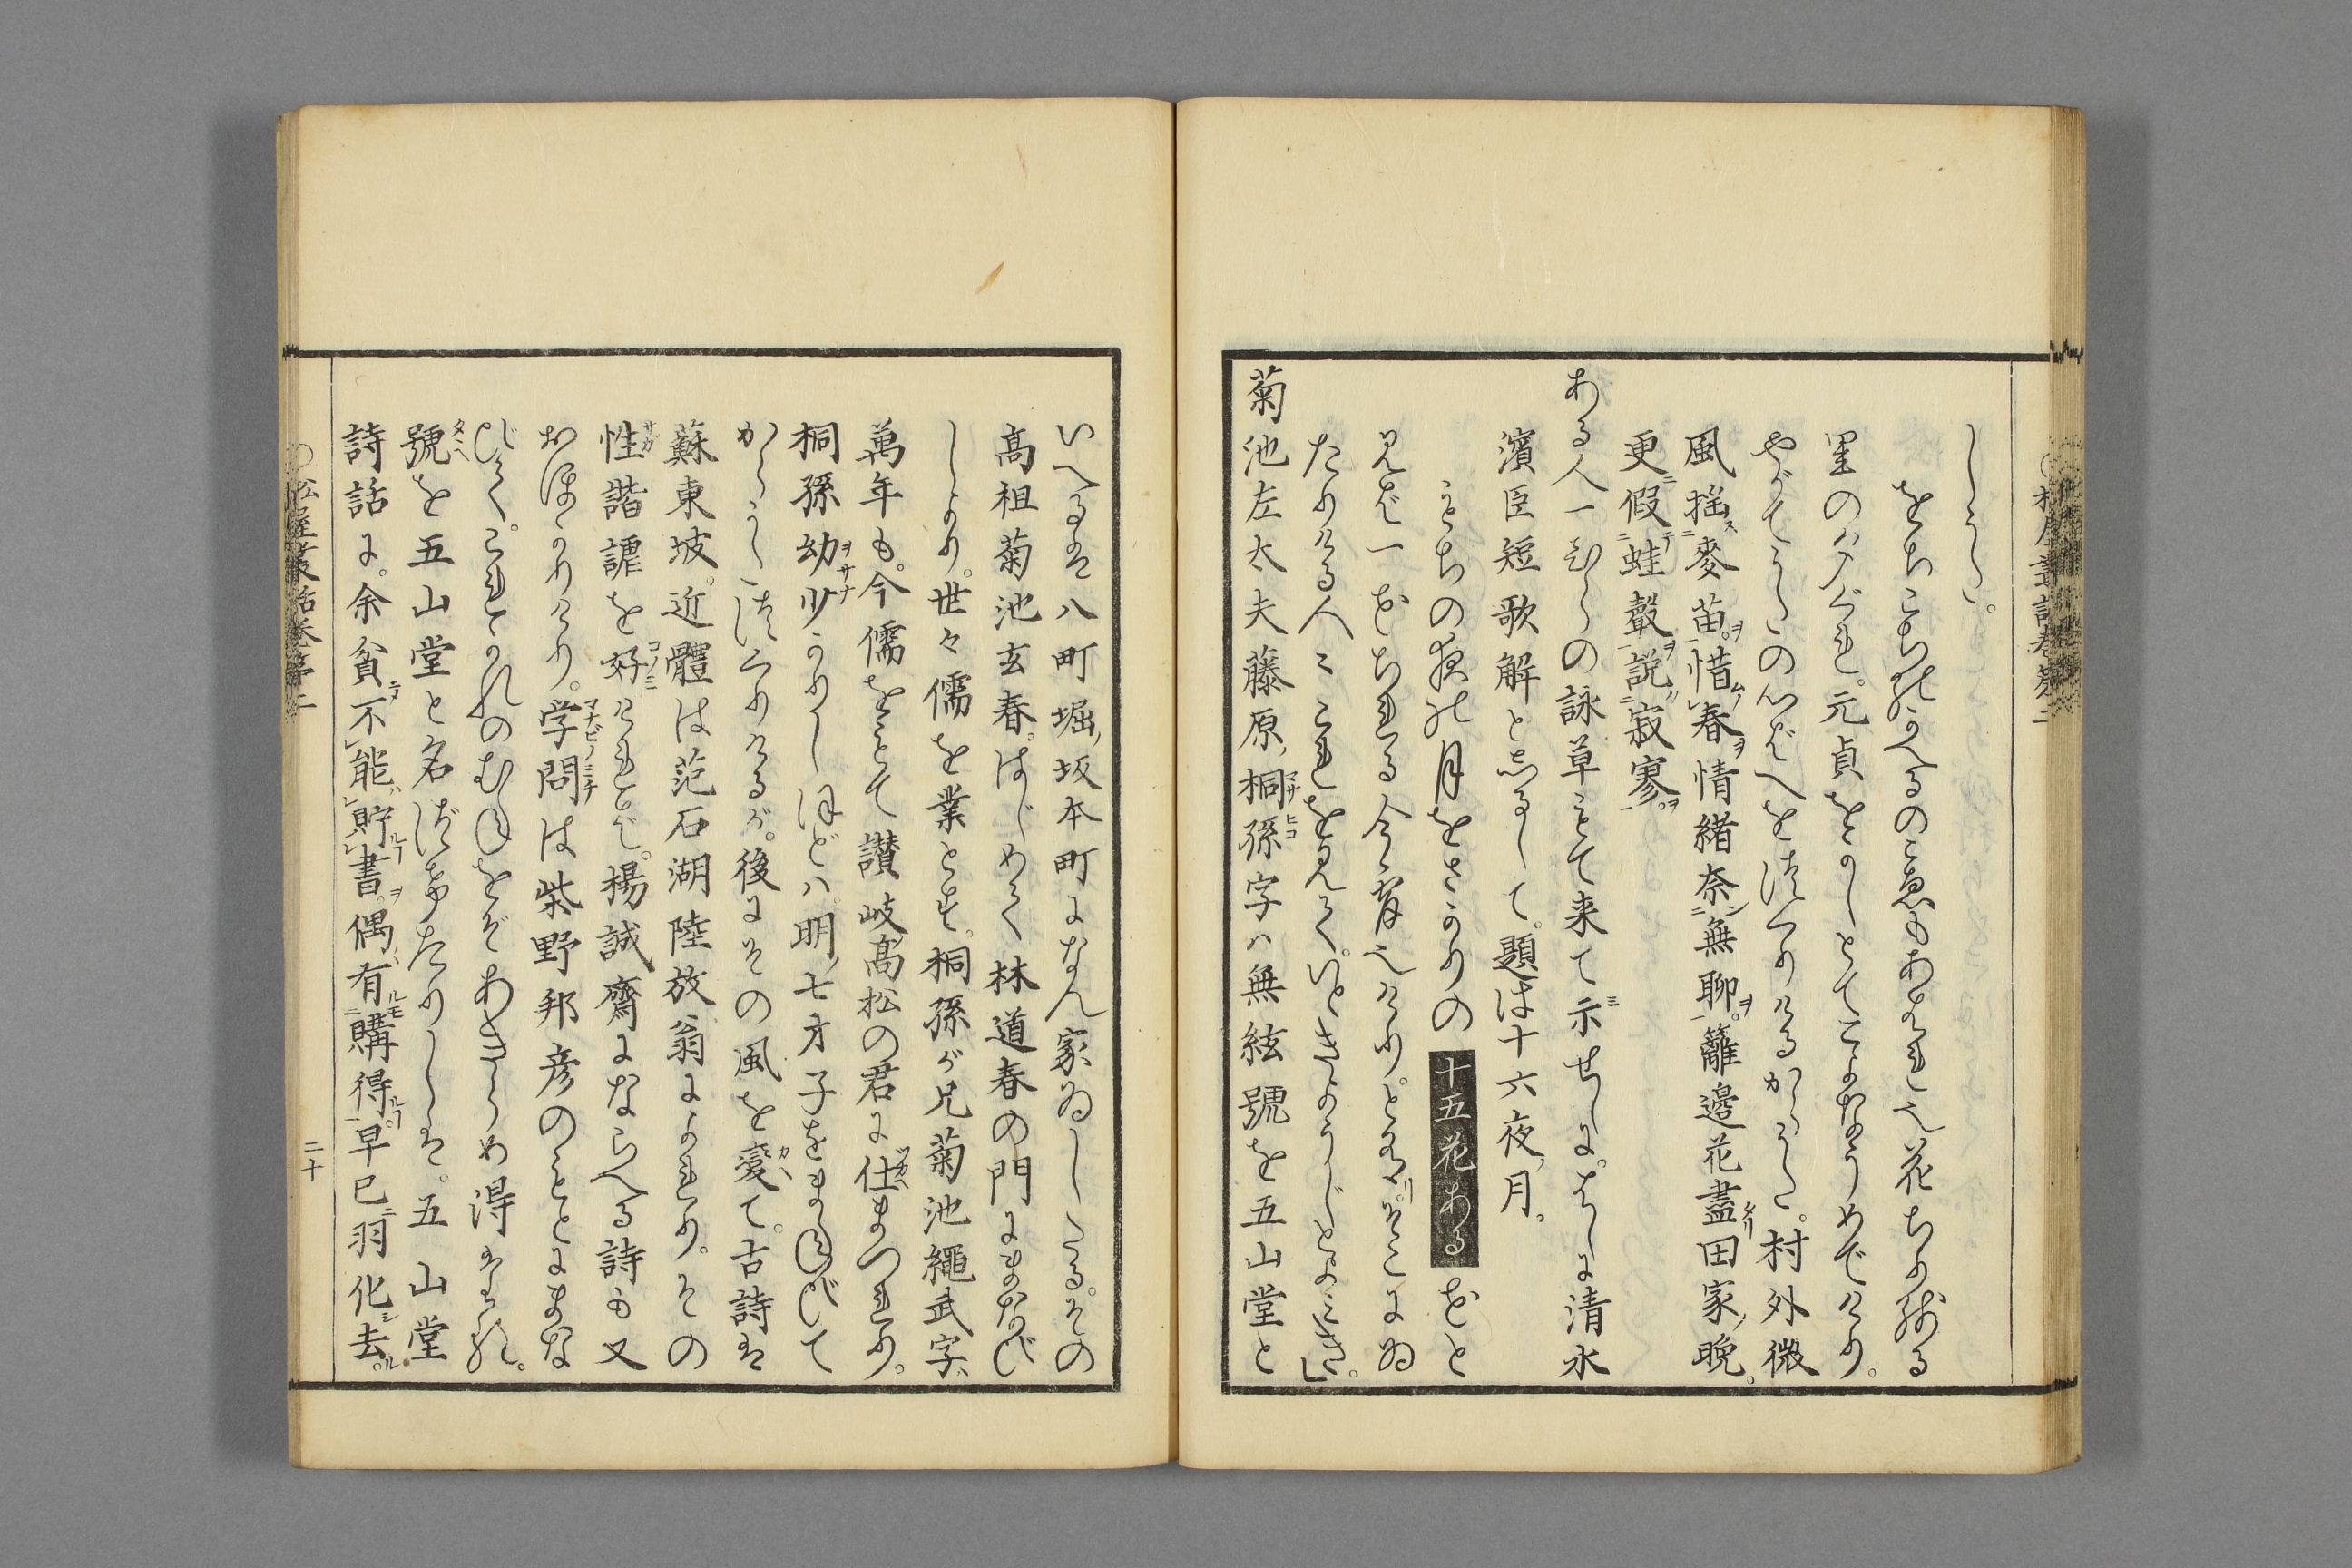 しかり。
をちこちにかへるのこゑもあはれ也花ちり残る
里の夕ぐれ。元貞をかしとてこよなうめでけり。
やがてうたの心ばへをつくりけるからうた。村外微
風揺麥苗。惜春情緒奈無聊。籬邊花盡田家晩。
更假蛙聲説寂寥。
ある人一ひらの詠草もて来て示せしに。はしに清水
濱臣短歌解としるして。題は十六夜月。
もちの夜の月をさかりの十五花あるをと
見れば一ひらちれる今宵也けり。とあり。そこにゐ
たりける人々これを見て。いときようじとよみき。
菊池左太夫藤原桐孫字ハ無絃號を五山堂と
いへるは八町堀坂本町になん家ゐしたる。その
髙祖菊池玄春。はじめて林道春の門にまなび
しより。世々儒を業とす。桐孫が兄菊池繩武字
萬年も。今儒をもて讃岐髙松の君に仕まつれり。
桐孫幼少かりしほどハ。明七才子をまねびて
からうたつくりけるが。後にその風を變て。古詩は
蘇東坡。近體は范石湖陸放翁によれり。その
性諧謔を好けれども。楊誠齋にならへる詩も又
おほかりけり。学問は柴野邦彦のもとにまな
びて。これかれのむねをぞあきらめ得ける。
號を五山堂と名づけたりしは。五山堂
詩話に。余貧不能貯書。偶有購得。早已羽化去。
二十